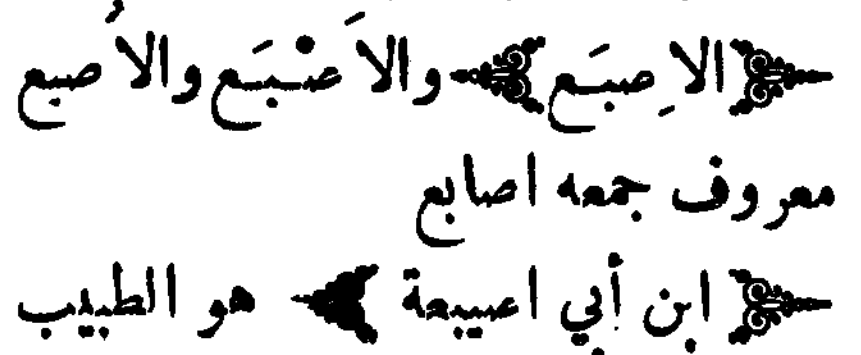 ﴿الاِصبَع﴾ والاَصْبَع والاُصبع
معروف جمعه اصابع
﴿ابن أبي اصيبعة﴾ هو الطبيب